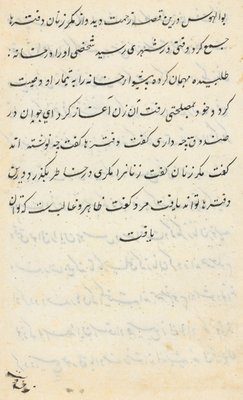 بوالهوس درین قصه زحمت دید و از مکر زنان دفترها
جمع کرد وقتی در شهری رسید شخصی او را در خانه
طلبیده مهمان کرد و به تیمار او
کرد و خود بمصلحتی رفت آن زن اغاز کرد ای جوان در
صندوق چه داری گفت دفترها گفت چه نوشته اند
گفت مکر زنان گفت زنانرا مکری در خاطر بگذرد درین
دفترها تواند یافت مرد گفت ظاهر و غالب ست که توان
یافت